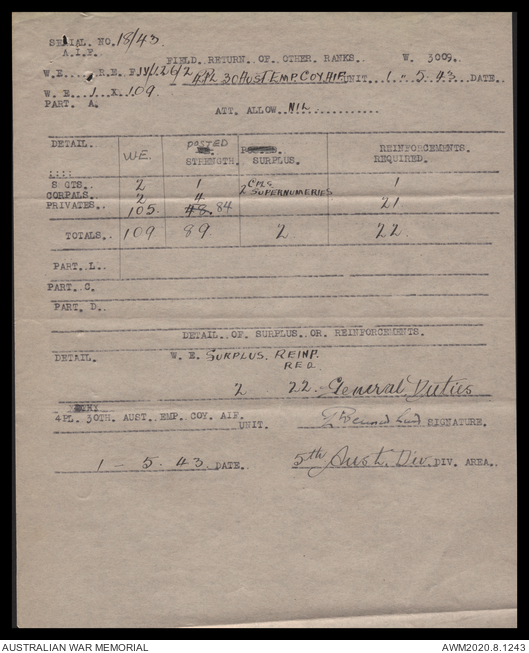 SERIAL NO. 18/43
A.I.F.
FIELD RETURN OF OTHER RANKS. W. 3009.
W.E. R.E. 4 PL 30 AUST EMP. COY. AIF UNIT. 1 . 5 . 43 DATE.
W. E. 1 X. 109.
PART A. ATT. ALLOW. NIL
DETAIL. W.E. POSTED STRENGTH. SURPLUS. REINFORCEMENTS. REQUIRED.
SGTS. 2 1 1
CORPALS. 2 4 2 CPLS SUPERNUMERIES
PRIVATES. 105. 48. 84 21
TOTALS. 109 89 2 22.
PART. L.
PART. C.
PART. D.
DETAIL OF SURPLUS OR REINFORCEMENTS.
DETAIL. W. E. SURPLUS. REINF. REQ.
2 22. General Duties
4PL. 30TH. AUST. EMP. COY. AIF. UNIT. SIGNATURE.
1 - 5. 43. DATE. 5th Aust. Div. DIV. AREA.
AUSTRALIAN WAR MEMORIAL AWM2020.8.1243